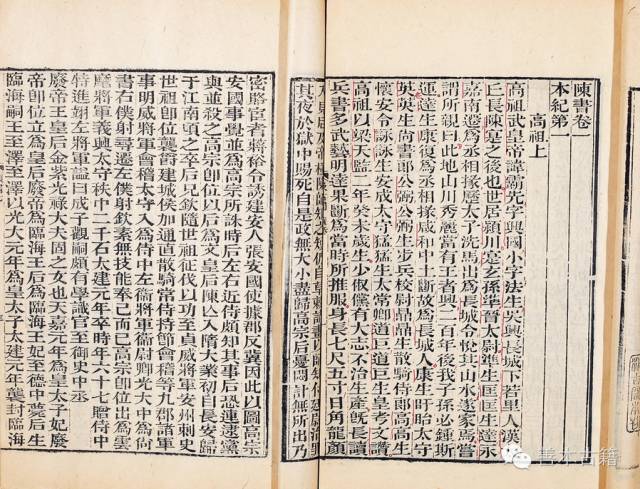 陳書卷
本紀第
高祖上
高祖武皇帝諱霸先字興國小字法生吳興長城下若里人漢
太丘長陳寔之後也世居潁川寔玄孫準晉太尉準生匡匡生達永
嘉南遷爲丞相掾歷太子洗馬出爲長城令悅其山水遂家焉嘗
謂所親曰此地山川秀麗當有王者興二百年後我子孫必鍾斯
運達生康復爲丞相掾咸和中土斷故爲長城人康生盱眙太守
英英生尚書郎公弼公弼生步兵校尉鼎鼎生散騎侍郎高高生
懷安令詠詠生安成太守猛猛生太常卿道巨道巨生皇考文讚
高祖以梁天監二年癸未歲生少俶儻有大志不治生產旣長讀
兵書多武藝明達果斷爲當時所推服身長七尺五寸日角龍顏
其夜於獄中賜死自是政無大小盡歸高宗后憂悶計無所出乃
密賂宦者蔣裕令誘建安人張安國使據郡反冀因此以圖高宗
安國事覺並爲高宗所誅時后左右近侍頗知其事后恐連逮黨
與並殺之高宗卽位以后爲文皇后陳亡入隋大業初自長安歸
于江南頃之卒后兄欽隨世祖征伐以功至貞威將軍安州刺史
世祖卽位襲爵建城侯加通直散騎常侍持節會稽等九郡諸軍
事明威將軍會稽太守入爲侍中左衞將軍衞尉卿光大中爲尚
書右僕射尋遷左僕射欽素無技能奉己而已高宗卽位出爲雲
麾將軍義興太守秩中二千石太建元年卒時年六十七贈侍中
特進翊左將軍謚曰成子觀嗣頗有學識官至御史中丞
廢帝王皇后金紫光祿大夫固之女也天嘉元年爲皇太子妃廢
帝卽位立爲皇后廢帝爲臨海王后爲臨海王妃至德中薨后生
臨海嗣王至澤至澤以光大元年爲皇太子太建元年襲封臨海
善本古籍